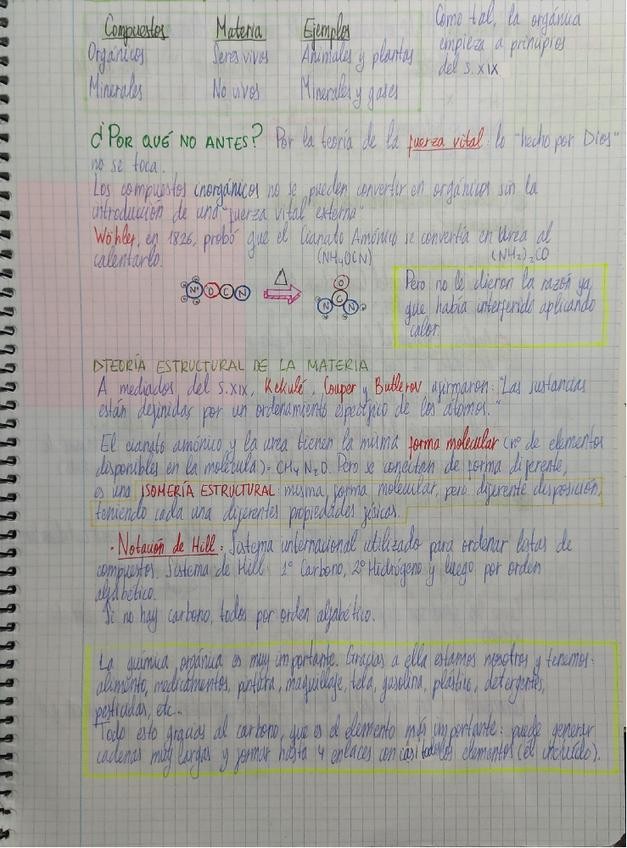 Compuestos Materia Ejemplos
Orgánicos Seres vivos Animales y plantas
Minerales No vivos Minerales y gases
Como tal, la orgánica
empieza a principios
del s. XIX
¿POR QUÉ NO ANTES? Por la teoría de la fuerza vital: lo "hecho por Dios"
no se toca.
Los compuestos inorgánicos no se pueden convertir en orgánicos sin la
introducción de una "fuerza vital externa"
Wöhler, en 1826, probó que el Cianato Amónico se convertía en Urea al
calentarlo. (NH4OCN) (NH2)2CO
N+ O C N Δ O C N N
Pero no le dieron la razón ya
que había interferido aplicando
calor.
TEORÍA ESTRUCTURAL DE LA MATERIA
A mediados del s.XIX, Kekulé, Couper y Butlerov afirmaron: "Las sustancias
están definidas por un ordenamiento específico de los átomos."
El cianato amónico y la urea tienen la misma forma molecular (nº de elementos
disponibles en la molécula) = CH4N2O. Pero se conectan de forma diferente,
es una ISOMERÍA ESTRUCTURAL: misma forma molecular, pero diferente disposición,
teniendo cada una diferentes propiedades físicas.
· Notación de Hill: Sistema internacional utilizado para ordenar listas de
compuestos. Sistema de Hill: 1º Carbono, 2º Hidrógeno y luego por orden
alfabético.
Si no hay carbono, todos por orden alfabético.
La química orgánica es muy importante. Gracias a ella estamos nosotros y tenemos:
alimento, medicamentos, pintura, maquillaje, tela, gasolina, plástico, detergentes,
pesticidas, etc.
Todo esto gracias al carbono, que es el elemento más importante: puede generar
cadenas muy largas y formar hasta 4 enlaces con casi todos los elementos (él incluído).